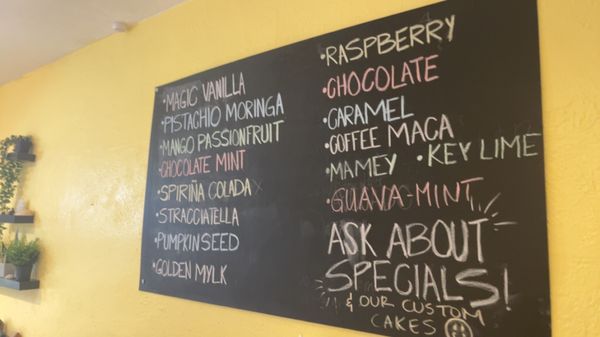 •MAGIC VANILLA
•PISTACHIO MORINGA
•MANGO PASSIONFRUIT
•CHOCOLATE MINT
•SPIRIÑA COLADA
•STRACCIATELLA
•PUMPKINSEED
•GOLDEN MYLK
•RASPBERRY
•CHOCOLATE
•CARAMEL
•COFFEE MACA
•MAMEY •KEY LIME
•GUAVA-MINT
ASK ABOUT
SPECIALS!
& OUR CUSTOM
CAKES